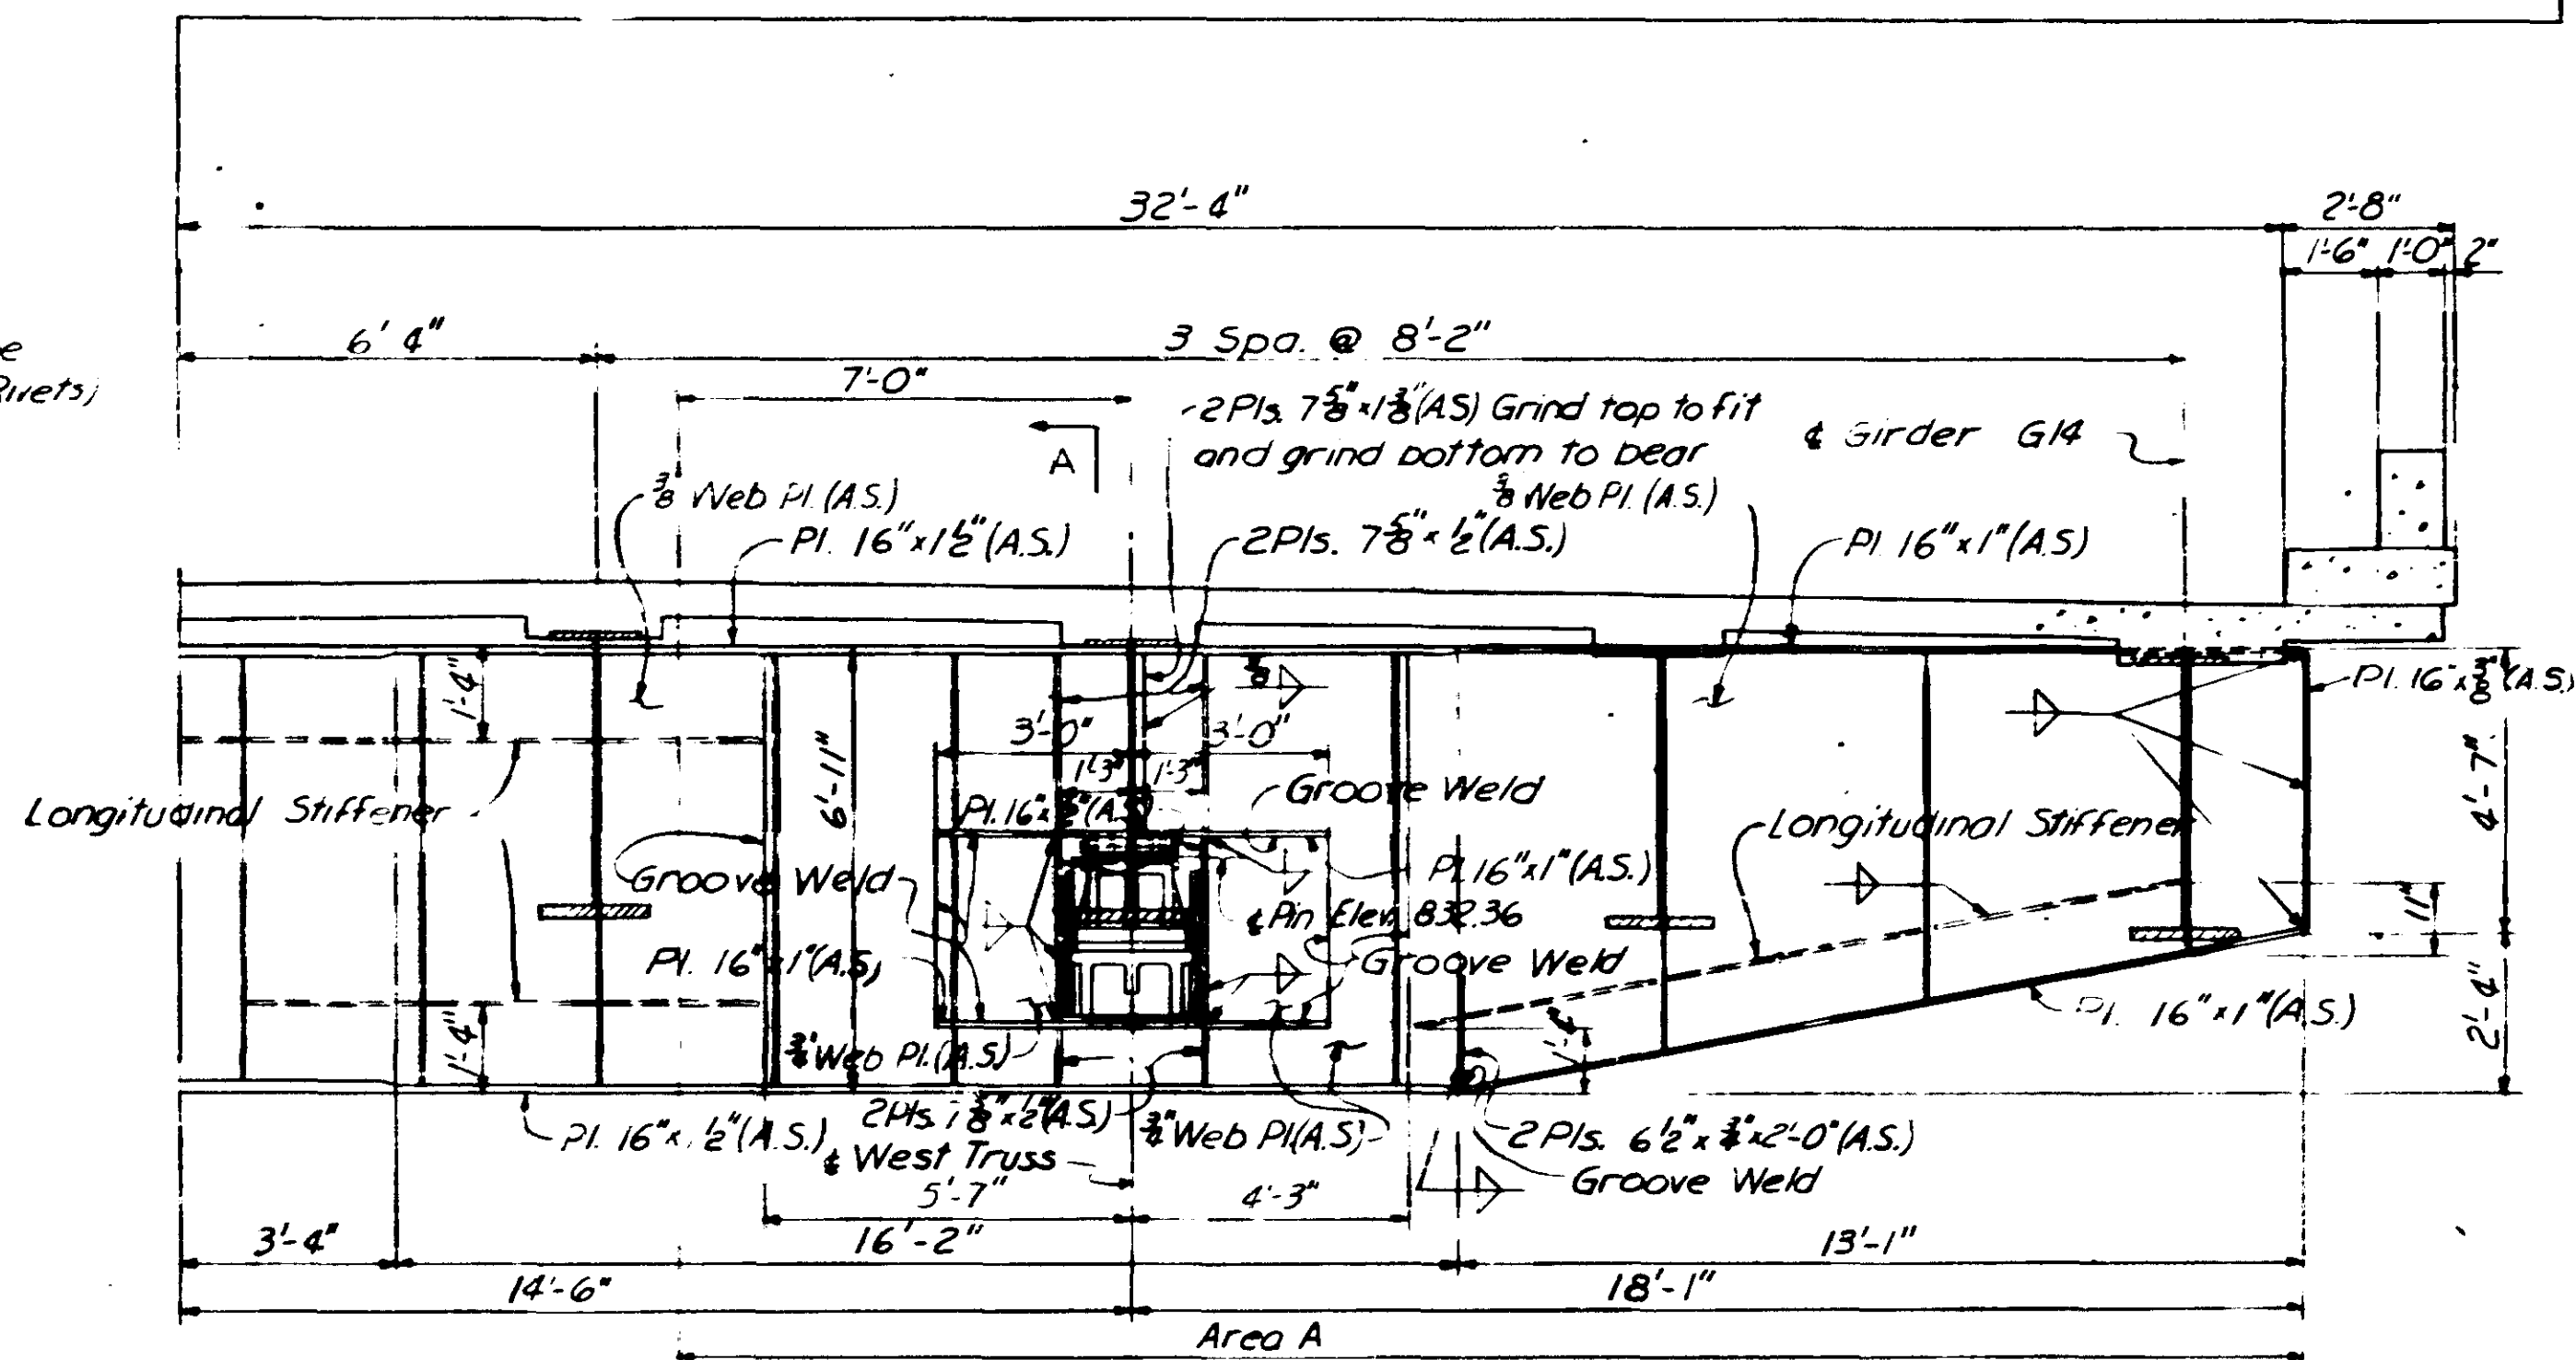 32'-4"
2'-8"
1'-6" 1'-0" 2"
6' 4"
3 Spa. @ 8'-2"
Rivets)
7'-0"
2 Pls. 7 5/8" x 1 3/8" (A.S) Grind top to fit
and grind bottom to bear
℄ Girder G14
A
3/8 Web Pl. (A.S.)
3/8 Web Pl. (A.S.)
Pl. 16" x 1 1/2" (A.S.)
2 Pls. 7 5/8" x 1/2" (A.S.)
Pl. 16" x 1" (A.S)
Pl. 16" x 3/8" (A.S.)
1'-4"
6'-11"
3'-0" 3'-0"
1'-3" 1'-3"
4'-7"
Longitudinal Stiffener
Groove Weld
Longitudinal Stiffener
Groove Weld
Pl. 16" x 1" (A.S.)
℄ Pin Elev. 832.36
11"
Pl. 16" x 1" (A.S)
Groove Weld
Pl. 16" x 1" (A.S.)
2'-4"
1'-4"
3/4" Web Pl. (A.S)
3/4" Web Pl. (A.S)
2 Pls. 6 1/2" x 3/4" x 2'-0" (A.S.)
℄ West Truss
Groove Weld
5'-7"
4'-3"
3'-4"
16'-2"
13'-1"
14'-6"
18'-1"
Area A